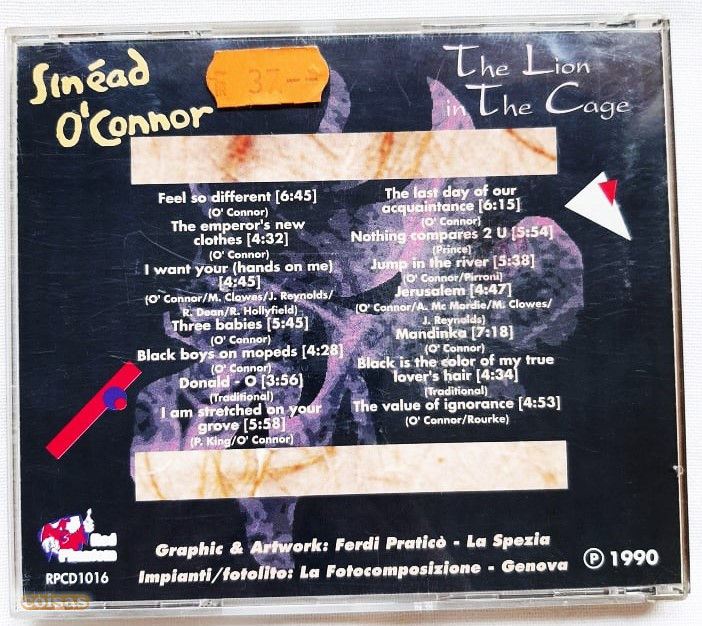 Sinéad
O'Connor
37
The Lion
in The Cage
Feel so different [6:45]
(O' Connor)
The emperor's new
clothes [4:32]
(O' Connor)
I want your (hands on me)
[4:45]
(O' Connor/M. Clowes/J. Reynolds/
R. Dean/R. Hollyfield)
Three babies [5:45]
(O' Connor)
Black boys on mopeds [4:28]
(O' Connor)
Donald - O [3:56]
(Traditional)
I am stretched on your
grove [5:58]
(P. King/O' Connor)
The last day of our
acquaintance [6:15]
(O' Connor)
Nothing compares 2 U [5:54]
(Prince)
Jump in the river [5:38]
(O' Connor/Pirroni)
Jerusalem [4:47]
(O' Connor/A. Mc Mordie/M. Clowes/
J. Reynolds)
Mandinka [7:18]
(O' Connor)
Black is the color of my true
lover's hair [4:34]
(Traditional)
The value of ignorance [4:53]
(O' Connor/Rourke)
Red
Phantom
RPCD1016
Graphic & Artwork: Ferdi Praticò - La Spezia
Impianti/fotolito: La Fotocomposizione - Genova
℗ 1990
coisas